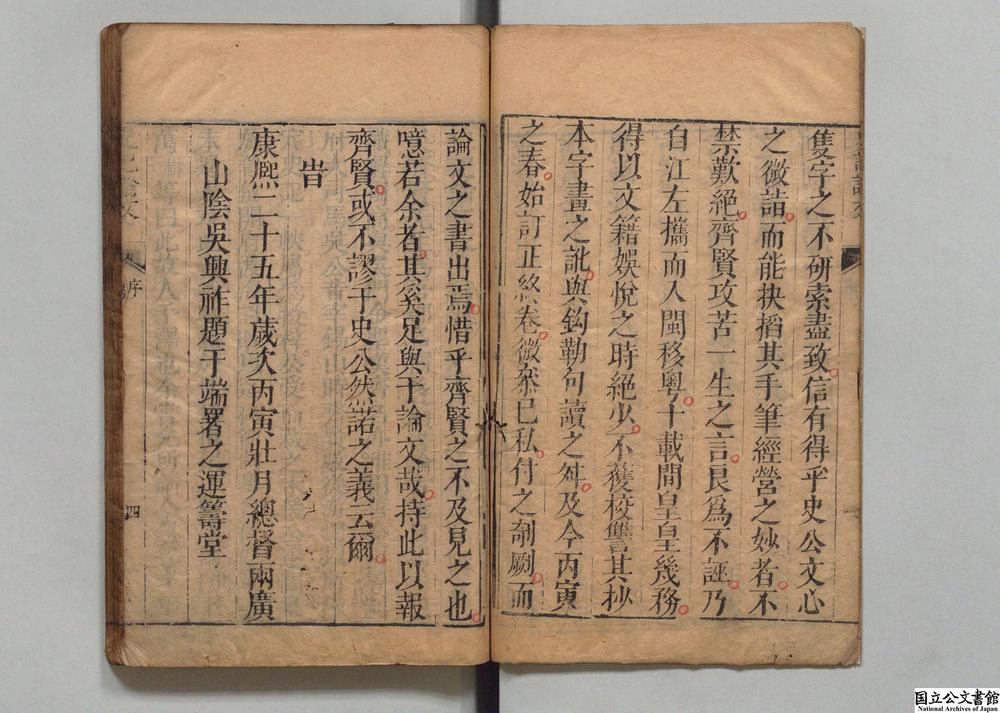 隻字之不研索盡致信有得乎史公文心
之微詣而能抉搯其手筆經營之妙者不
禁歎絕齊賢攻苦一生之言良爲不誣乃
自江左攜而入閩移粵十載間皇皇幾務
得以文籍娛悅之時絕少不獲校讐其抄
本字畫之訛與鈎勒句讀之舛及今丙寅
之春始訂正終卷微叅已私付之剞劂而
論文之書出焉惜乎齊賢之不及見之也
噫若余者其奚足與于論文哉持此以報
齊賢或不謬于史公然諾之義云爾
旹
康熙二十五年歲次丙寅壯月總督兩廣
山陰吳興祚題于端署之運籌堂
序
四
国立公文書館
National Archives of Japan